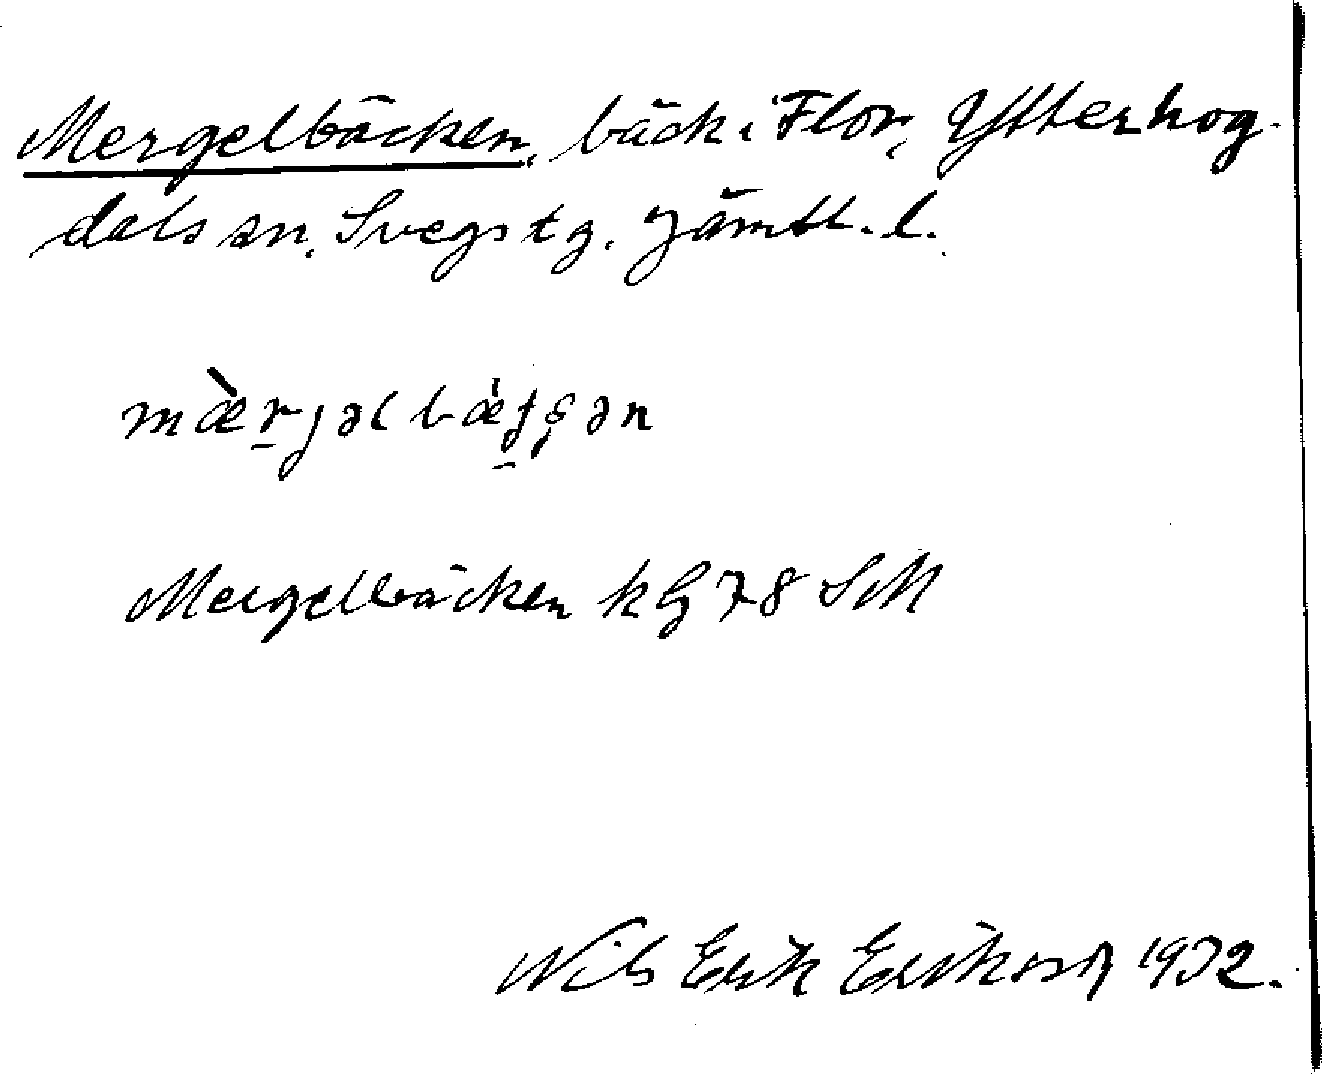 Mergelbäcken, bäck i Flor, Ytterhog-
dals sn, Svegs tg. Jämtl. l.
mæ̀r̠jəlbæ̀ʈʂən
Mergelbäcken kG 78 SM
Nils Erik Erikson 1932.